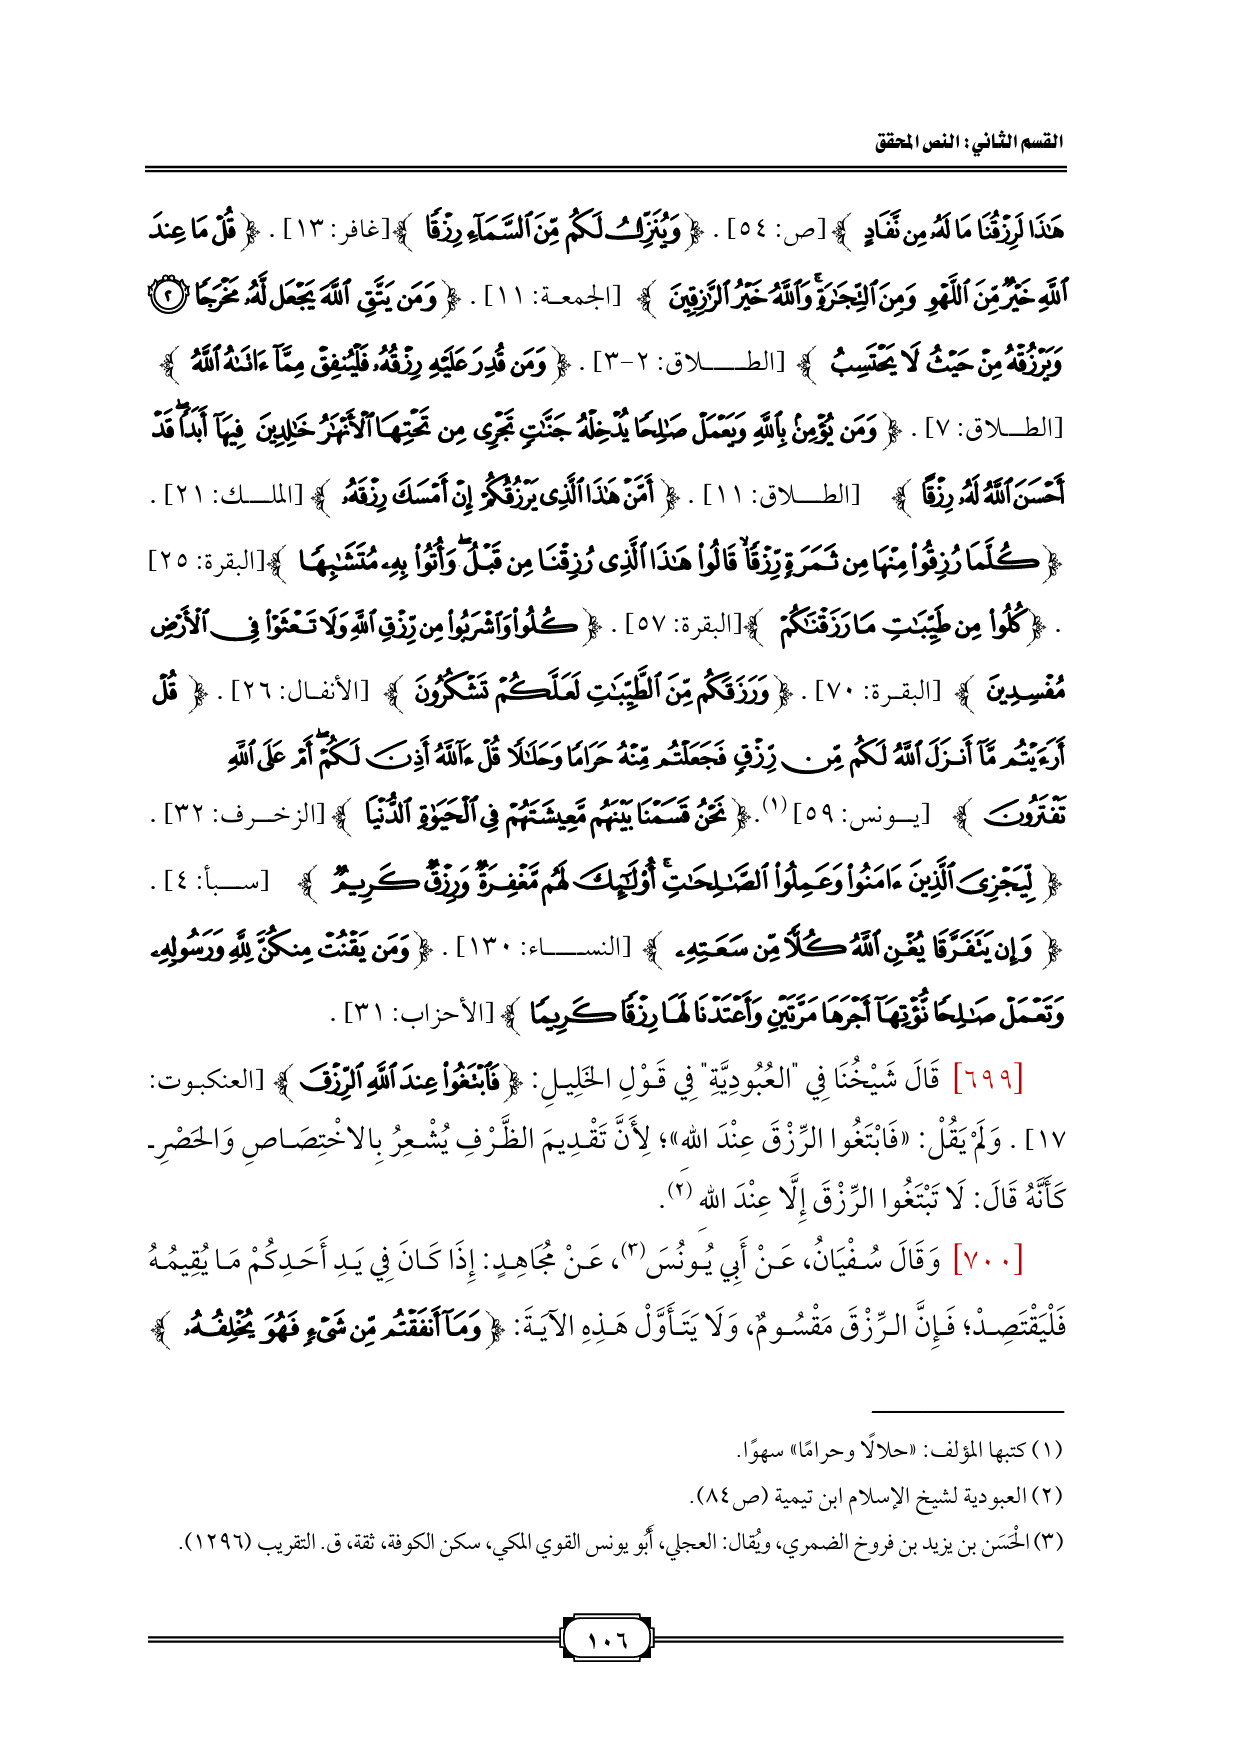 القسم الثاني: النص المحقق
هَٰذَا لَرِزْقُنَا مَا لَهُۥ مِن نَّفَادٍ ﴾[ص: ٥٤] . ﴿ وَيُنَزِّلُ لَكُم مِّنَ ٱلسَّمَآءِ رِزْقًا ﴾[غافر: ١٣] . ﴿ قُلْ مَا عِندَ
ٱللَّهِ خَيْرٌ مِّنَ ٱللَّهْوِ وَمِنَ ٱلتِّجَٰرَةِ ۚ وَٱللَّهُ خَيْرُ ٱلرَّٰزِقِينَ ﴾ [الجمعة: ١١] . ﴿ وَمَن يَتَّقِ ٱللَّهَ يَجْعَل لَّهُۥ مَخْرَجًا ٢
وَيَرْزُقْهُ مِنْ حَيْثُ لَا يَحْتَسِبُ ﴾ [الطلاق: ٢-٣] . ﴿ وَمَن قُدِرَ عَلَيْهِ رِزْقُهُۥ فَلْيُنفِقْ مِمَّآ ءَاتَىٰهُ ٱللَّهُ ﴾
[الطلاق: ٧] . ﴿ وَمَن يُؤْمِنۢ بِٱللَّهِ وَيَعْمَلْ صَٰلِحًا يُدْخِلْهُ جَنَّٰتٍ تَجْرِى مِن تَحْتِهَا ٱلْأَنْهَٰرُ خَٰلِدِينَ فِيهَآ أَبَدًا ۖ قَدْ
أَحْسَنَ ٱللَّهُ لَهُۥ رِزْقًا ﴾ [الطلاق: ١١] . ﴿ أَمَّنْ هَٰذَا ٱلَّذِى يَرْزُقُكُمْ إِنْ أَمْسَكَ رِزْقَهُۥ ﴾[الملك: ٢١] .
﴿ كُلَّمَا رُزِقُوا۟ مِنْهَا مِن ثَمَرَةٍ رِّزْقًا ۙ قَالُوا۟ هَٰذَا ٱلَّذِى رُزِقْنَا مِن قَبْلُ ۖ وَأُتُوا۟ بِهِۦ مُتَشَٰبِهًا ﴾[البقرة: ٢٥]
. ﴿كُلُوا۟ مِن طَيِّبَٰتِ مَا رَزَقْنَٰكُمْ ﴾[البقرة: ٥٧] . ﴿ كُلُوا۟ وَٱشْرَبُوا۟ مِن رِّزْقِ ٱللَّهِ وَلَا تَعْثَوْا۟ فِى ٱلْأَرْضِ
مُفْسِدِينَ ﴾ [البقرة: ٧٠] . ﴿ وَرَزَقَكُم مِّنَ ٱلطَّيِّبَٰتِ لَعَلَّكُمْ تَشْكُرُونَ ﴾ [الأنفال: ٢٦] . ﴿ قُلْ
أَرَءَيْتُم مَّآ أَنزَلَ ٱللَّهُ لَكُم مِّن رِّزْقٍ فَجَعَلْتُم مِّنْهُ حَرَامًا وَحَلَٰلًا قُلْ ءَآللَّهُ أَذِنَ لَكُمْ ۖ أَمْ عَلَى ٱللَّهِ
تَفْتَرُونَ ﴾ [يونس: ٥٩] (١).﴿ نَحْنُ قَسَمْنَا بَيْنَهُم مَّعِيشَتَهُمْ فِى ٱلْحَيَوٰةِ ٱلدُّنْيَا ﴾[الزخرف: ٣٢] .
﴿ لِّيَجْزِىَ ٱلَّذِينَ ءَامَنُوا۟ وَعَمِلُوا۟ ٱلصَّٰلِحَٰتِ ۚ أُو۟لَٰٓئِكَ لَهُم مَّغْفِرَةٌ وَرِزْقٌ كَرِيمٌ ﴾ [سبأ: ٤] .
﴿ وَإِن يَتَفَرَّقَا يُغْنِ ٱللَّهُ كُلًّا مِّن سَعَتِهِۦ ﴾ [النساء: ١٣٠] . ﴿ وَمَن يَقْنُتْ مِنكُنَّ لِلَّهِ وَرَسُولِهِۦ
وَتَعْمَلْ صَٰلِحًا نُّؤْتِهَآ أَجْرَهَا مَرَّتَيْنِ وَأَعْتَدْنَا لَهَا رِزْقًا كَرِيمًا ﴾[الأحزاب: ٣١] .
[٦٩٩] قَالَ شَيْخُنَا فِي "العُبُودِيَّةِ" فِي قَوْلِ الخَلِيلِ: ﴿ فَٱبْتَغُوا۟ عِندَ ٱللَّهِ ٱلرِّزْقَ ﴾ [العنكبوت:
١٧] . وَلَمْ يَقُلْ: «فَابْتَغُوا الرِّزْقَ عِنْدَ اللهِ»؛ لِأَنَّ تَقْدِيمَ الظَّرْفِ يُشْعِرُ بِالاخْتِصَاصِ وَالحَصْرِ۔
كَأَنَّهُ قَالَ: لَا تَبْتَغُوا الرِّزْقَ إِلَّا عِنْدَ اللهِ (٢).
[٧٠٠] وَقَالَ سُفْيَانُ، عَنْ أَبِي يُونُسَ(٣)، عَنْ مُجَاهِدٍ: إِذَا كَانَ فِي يَدِ أَحَدِكُمْ مَا يُقِيمُهُ
فَلْيَقْتَصِدْ؛ فَإِنَّ الرِّزْقَ مَقْسُومٌ، وَلَا يَتَأَوَّلْ هَذِهِ الآيَةَ: ﴿ وَمَآ أَنفَقْتُم مِّن شَىْءٍ فَهُوَ يُخْلِفُهُۥ ﴾
(١) كتبها المؤلف: «حلالًا وحرامًا» سهوًا.
(٢) العبودية لشيخ الإسلام ابن تيمية (ص٨٤).
(٣) الْحَسَن بن يزيد بن فروخ الضمري، ويُقال: العجلي، أَبُو يونس القوي المكي، سكن الكوفة، ثقة، ق. التقريب (١٢٩٦).
١٠٦